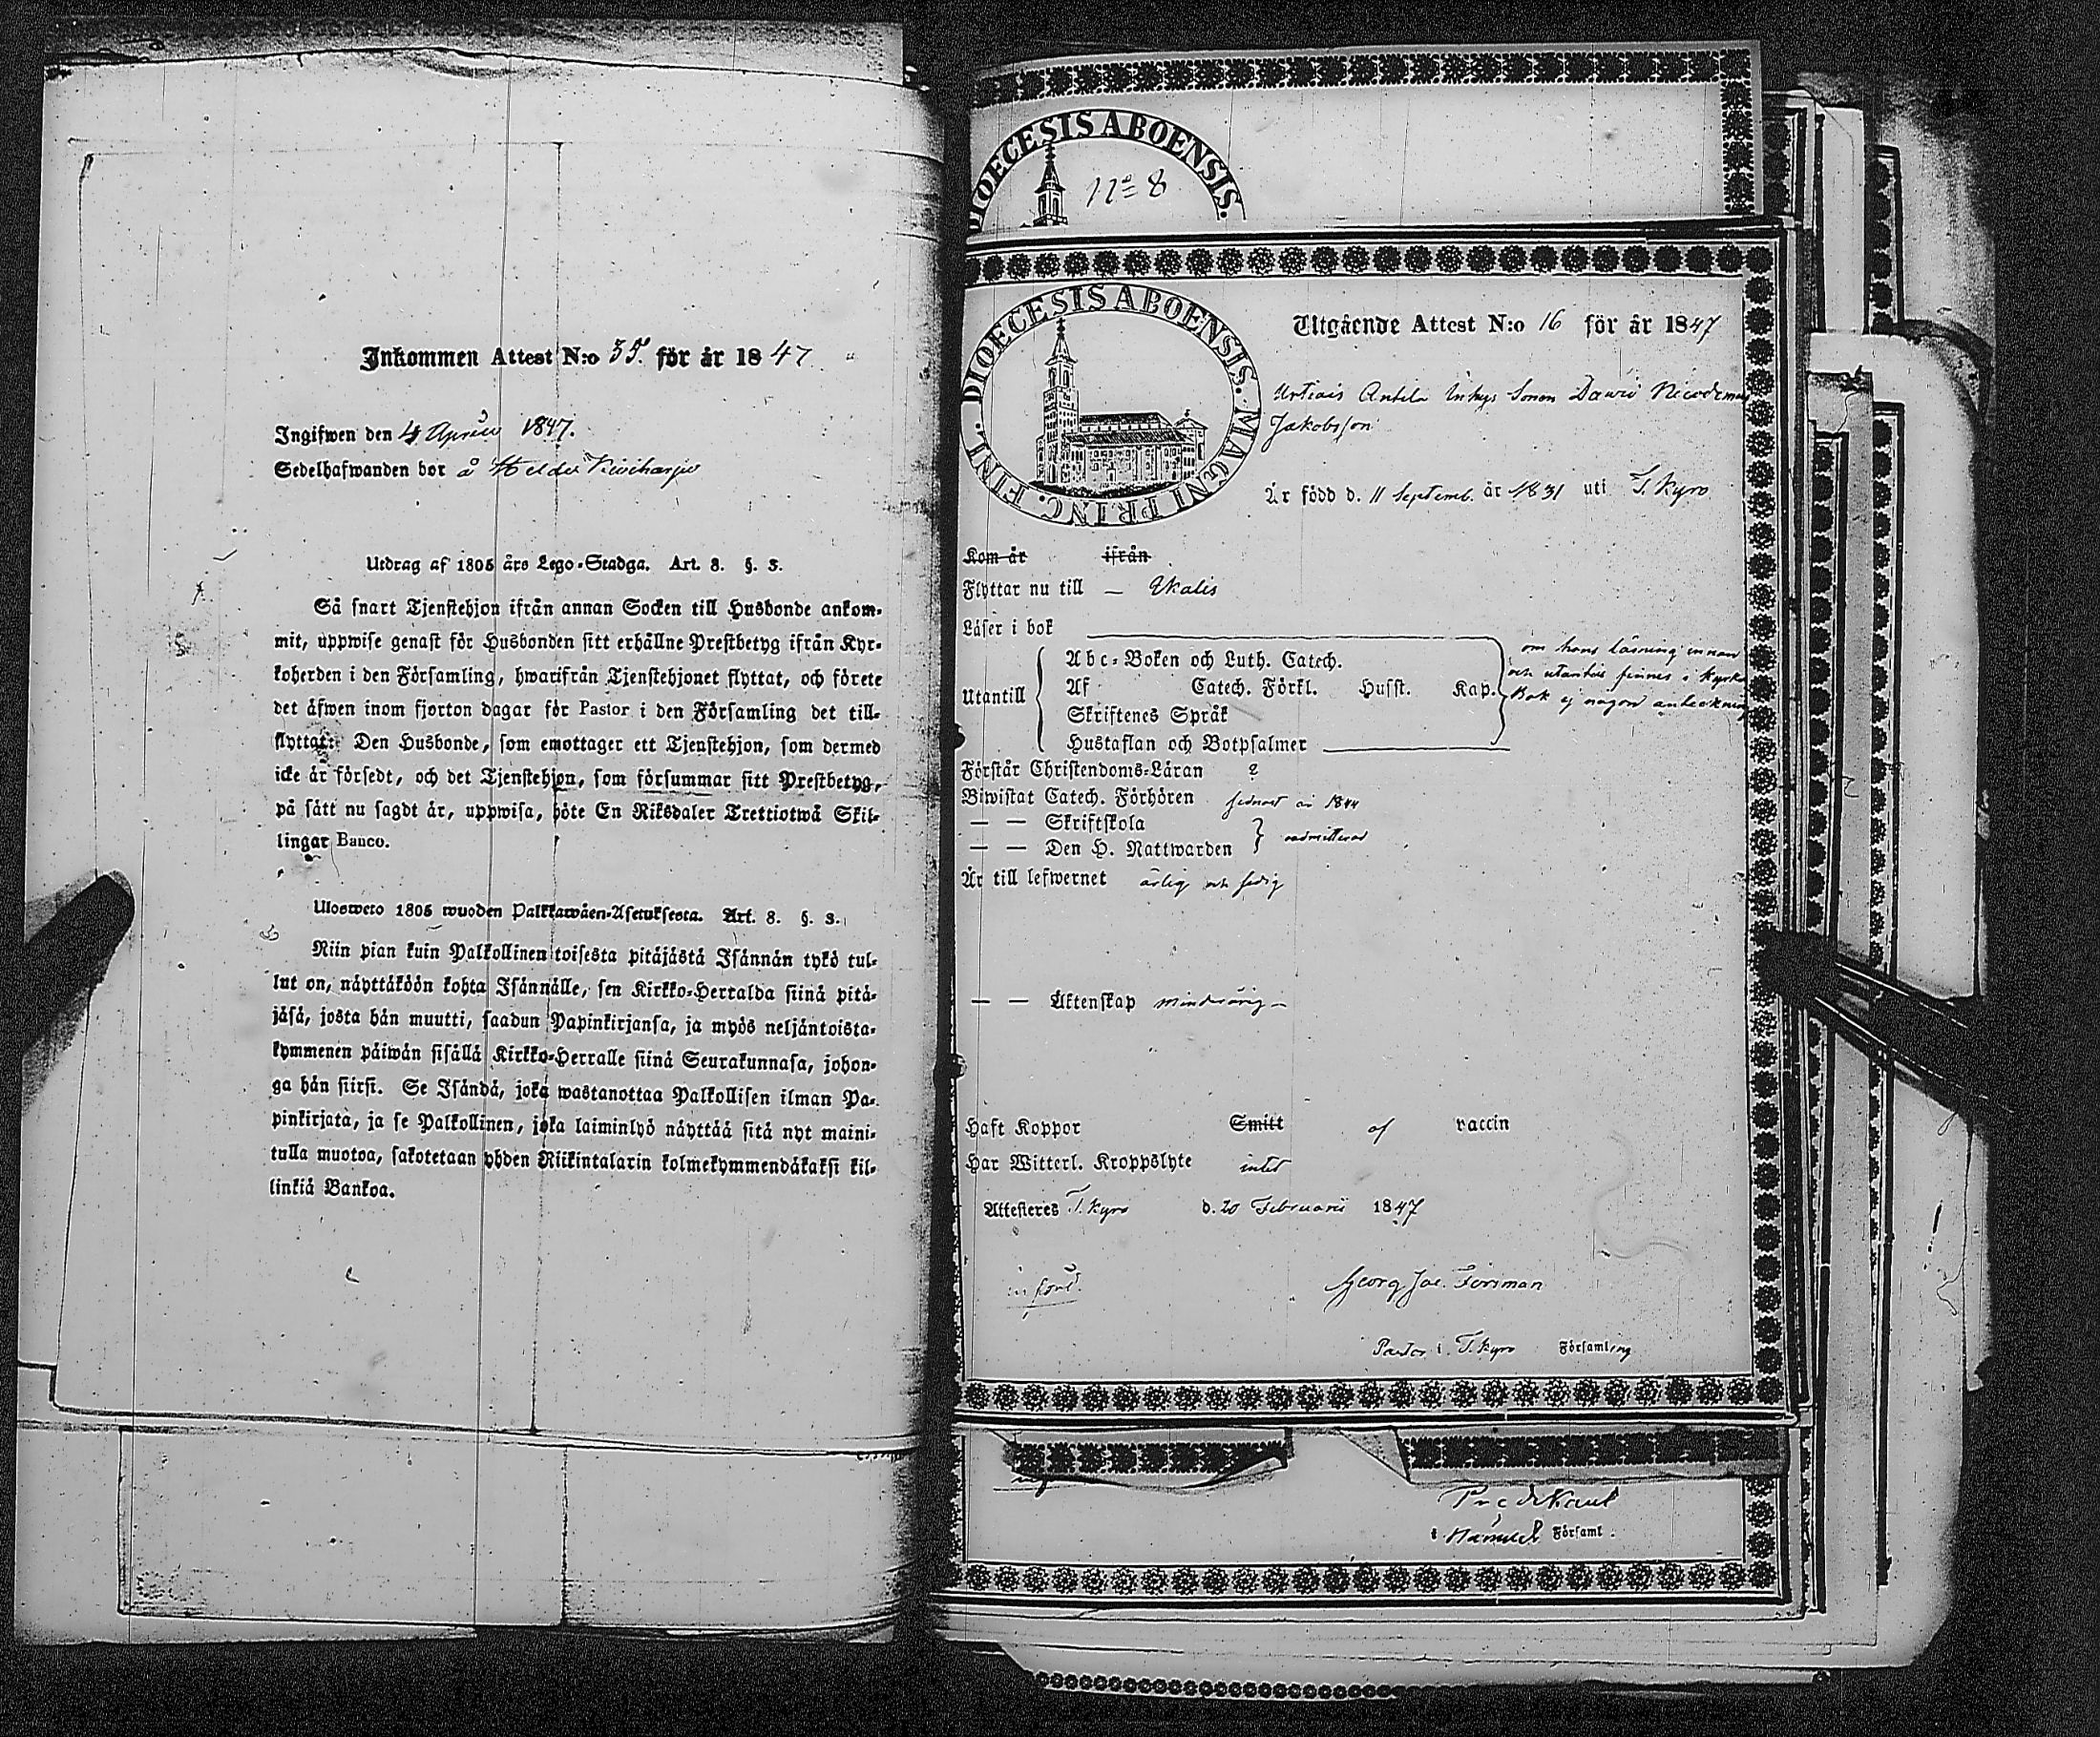 Inkommen Attest N:o 35. för år 1847
Ingifwen den 4 Aprill 1847.
Sedelhafwanden bor å
Utdrag af 1805 års Lego-Stadga. Art. 8. §. 3.
Så snart Tjenstehjon ifrån annan Socken till Husbonde ankom-
mit, uppwise genast för Husbonden sitt erhållne Prestbetyg ifrån Kyr-
koherden i den Församling, hwarifrån Tjenstehjonet flyttat, och förete
det äfwen inom fjorton dagar för Pastor i den Församling det till-
flyttat: Den Husbonde, som emottager ett Tjenstehjon, som dermed
icke är försedt, och det Tjenstehjon, som försummar sitt Prestbetyg,
på sätt nu sagdt är, uppwisa, böte En Riksdaler Trettiotwå Skil-
lingar Banco.
Ulosweto 1805 wuoden Palkkawäen-Asetuksesta. Art. 8. §. 3.
Niin pian kuin Palkollinen toisesta pitäjästä Isännän tykö tul-
lut on, näyttäköön kohta Isännälle, sen Kirkko-Herralda siinä pitä-
jäsä, josta hän muutti, saadun Papinkirjansa, ja myös neljäntoista-
kymmenen päiwän sisällä Kirkko-Herralle siinä Seurakunnasa, johon-
ga hän siirsi. Se Isändä, joka wastanottaa Palkollisen ilman Pa-
pinkirjata, ja se Palkollinen, joka laiminlyö näyttää sitä nyt maini-
tulla muotoa, sakotetaan yhden Riikintalarin kolmekymmendäkaksi kil-
linkiä Bankoa.
DIOECESIS ABOENSIS.
N:o 8
DIOECESIS ABOENSIS. MAGNI PRINC. FINL.
Utgående Attest N:o 16 för år 1847
Antila Inhys Sonen Dawid Nicodemus
Jakobsson
Är född d. 11 Septemb. år 1831 uti T. Kyro
Kom år ifrån
Flyttar nu till — Ikalis
Läser i bok
om hans läsning innan
Abc-Boken och Luth. Catech.
och utantill finnes i Kyrko
Utantill Af Catech. Förkl. Husst. Kap.
Bok ej någon anteckning
Skriftenes Språk
Hustaflan och Botpsalmer
Förstår Christendoms-Läran
Biwistat Catech. Förhören sednast år 1844
— — Skriftskola
— — Den H. Nattwarden admitterad
Är till lefwernet ärlig och sedig
— — Äktenskap minderårig —
Haft Koppor Smitt af vaccin
Har Witterl. Kroppslyte intet
Attesteres T. Kyro d. 20 Februarii 1847
Georg Jac. Forsman
Pastor i T. Kyro Församling
i Församl.